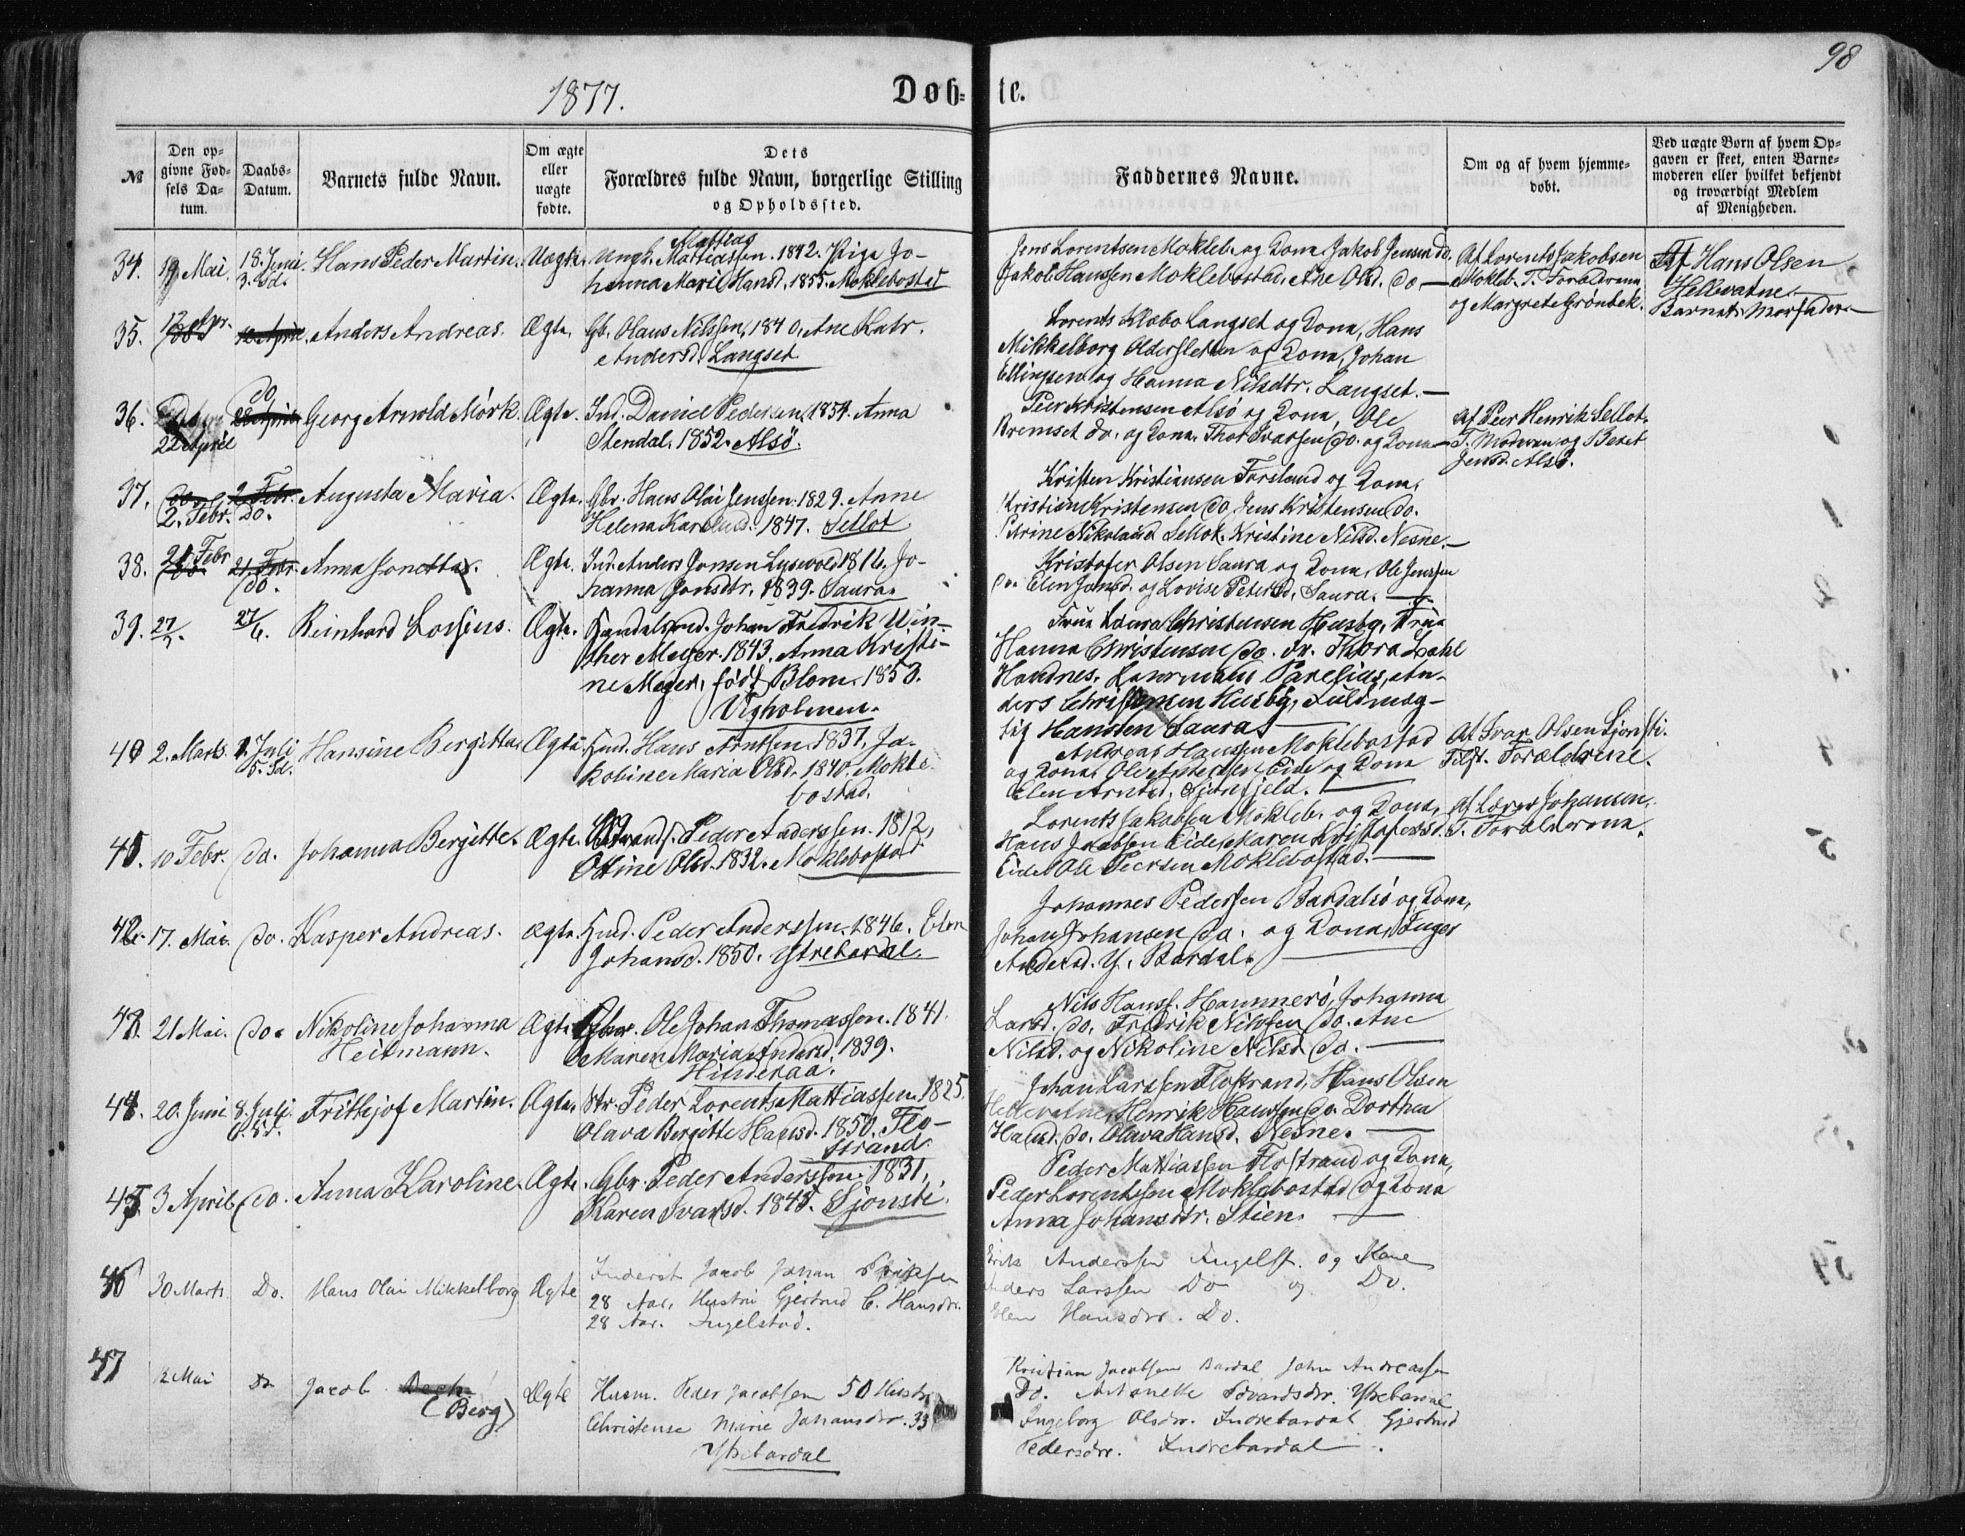 98
1877.
Døb-
te.
№
Den op-
givne Fød-
sels Da-
tum.
Daabs-
Datum.
Barnets fulde Navn.
Om ægte
eller
uægte
fødte.
Dets
Forældres fulde Navn, borgerlige Stilling
og Opholdssted.
Faddernes Navne.
Om og af hvem hjemme-
døbt.
Ved uægte Børn af hvem Op-
gaven er skeet, enten Barne-
moderen eller hvilket bekjendt
og troværdigt Medlem
af Menigheden.
34. 19 Mai. 18. Juni Hans Peder Martin. Uægte. Ungk. Mattiassen. 1842. Pige Jo-
3. Sd.
Mattias
hanna Marie Hansd. 1855. Moklebostad
Jens Lorentsen Mokleb. og Kona, Jakob Jensen do.
Jakob Hansen Moklebostad. Ane Olsd. do —
Af Lorents Jakobsen
Mokleb. T. Forældrene
og Margrete Grønbek.
Af Hans Olsen
Hellevatne
Barnets Morfader.
35. 12 Apr. Anders Andreas. Ægte. Gb. Olaus Nilssen, 1840, Ane Katr.
Andersd. Langset
Lorents Klobo Langset og Kona, Hans
Mikkelborg Oldersletten og Kona, Johan
Ellingsen og Hanna Nilsdtr. Langset. —
36. 22 April do Georg Arnold Mørk. Ægte. Ind. Daniel Pedersen, 1854. Anna
Stendal. 1852. Alsø.
Peer Kristensen Alsø og Kona, Ole
Bremset do. og Kona. Thor Ivarsen, do. og Kona —
Af Peer Henrik Sellot.
T. Moderen og Beret
Jensd. Alsø.
37. 2. Febr. do. Augusta Maria. Ægte. Gbr. Hans Olai Jenssen. 1829. Anne
Helena Karlsd. 1847. Sellot
Kristen Kristiansen Forsland og Kona,
Kristian Kristensen do, Jens Kristensen do.
Petrine Nikolaisd Sellot. Kristine Nilsd. Nesne. —
38. 21 Febr do. Anna Jonetta. Ægte. Ind. Anders Jonsen Lysvold 1816, Jo-
hanna Jonsdtr. 1839. Saura.
Kristofer Olsen Saura og Kona, Ole Jenssen
do. Elen Jansd. og Lovise Petersd. Saura. —
39. 27/5. 27/6. Reinhard Lossius. Ægte. Handelsmd. Johan Fredrik Win-
ther Meyer. 1843, Anna Kristi-
ne Meyer, født Blom. 1853.
Vigholmen.
Frue Laura Christensen Husby, Frue
Hanna Christensen do. Fr. Thora Dahl
Handnes. Parelius, An-
ders Christensen Husby, Fuldmæg-
tig Hanssen Saura —
40 2. Marts. 1. Juli Hansine Bergitta. Ægte. Hmd. Hans Arntsen. 1837, Ja-
5. Sd.
kobine Maria Olsd. 1840. Mokle-
bostad.
Andreas Hanssen Moklebostad
og Kona, Ole Andersen Eide og Kona
Elen Arntsd. Sjonfjeld. —
Af Ivar Olsen Sjonsti.
Tilst. Forældrene.
41. 10 Febr. do. Johanna Bergitte. Ægte. Strands. Peder Anderssen. 1812,
Oline Olsd. 1832. Moklebostad.
Lorents Jakobsen Mokleb. og Kona,
Hans Jakobsen Eide, Maren Kristofersd.
Eide. Ole Peersen Moklebostad. —
Af Lars Johansen.
T. Forældrene.
42. 17. Mai. do. Kasper Andreas. Ægte. Hmd. Peder Anderssen. 1846. Elen
Johansd. 1850. Ytrebardal.
Johannes Pedersen Bardalsø og Kona,
Johan Johansen do. og Kona, Inger
Andersd. Y. Bardal. —
43. 21 Mai. do. Nikoline Johanna
Heitmann.
Ægte. Gbr. Ole Johan Thomassen. 1841.
Maren Maria Andersd. 1839.
Hinderaa.
Nils Hansf. Hammerø, Johanna
Larsd. do. Fredrik Nilssen do. Ane
Nilsd. og Nikoline Nilsd do. —
44. 20. Juni 8. Juli. Frithjof Martin. Ægte. Str. Peder Lorents Mattiassen. 1825.
6. Sd.
Olava Bergitte Hansd. 1850. Flo-
strand.
Johan Larssen Flostrand, Hans Olsen
Hellevatne, Henrik Hanssen do. Dorthea
Hansd. do. Olava Hansd. Nesne. —
45. 3 April do. Anna Karoline. Ægte. Gbr. Peder Anderssen. 1831,
Karen Ivarsd. 1845. Sjonsti.
Peder Mattiassen Flostrand og Kona,
Peder Lorentssen Moklebostad og Kona
Anna Johansdtr. Stien. —
46 30 Marts. Do. Hans Olai Mikkelborg Ægte Inderst Jacob Johan Eriksen
28 Aar, Hustru Gjertrud C. Hansdr.
28 Aar. Ingelstad.
Erik Anderssen Ingelst. og Kone
Anders Larssen Do og Do.
Elen Hansdr. Do.
47 12 Mai Do Jacob
(Berg)
Ægte Husm. Peder Jacobsen 50 Hustr
Christense Marie Johansdr. 33
Ytrebardal
Kristian Jacobsen Bardal John Andreassen
Do. Antonette Edvardsdr. Ytrebardal
Ingeborg Olsdr. Indrebardal Gjertrud
Pedersdr. Indrebardal.